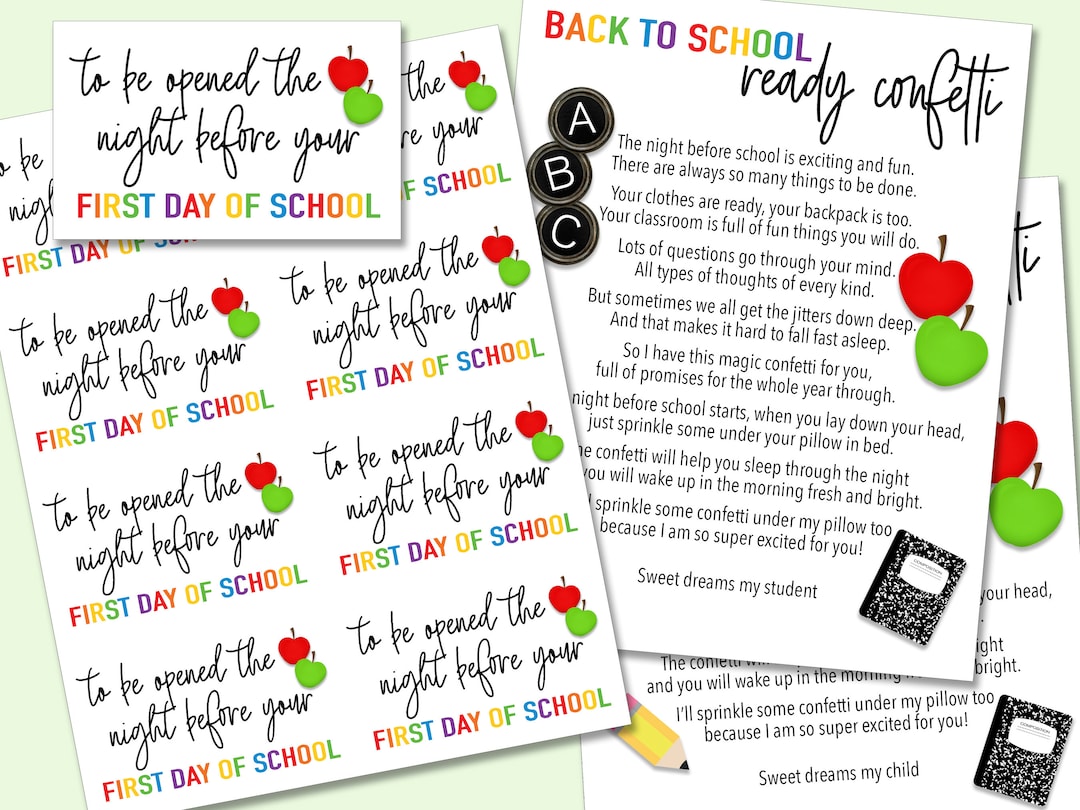 to be opened the
night before your
FIRST DAY OF SCHOOL
the
your
SCHOOL
to be
FIRST DAY OF
to be opened the
night before your
FIRST DAY OF SCHOOL
to be opened the
night before your
FIRST DAY OF SCHOOL
to be opened the
night before your
FIRST DAY OF SCHOOL
to be opened the
night before your
FIRST DAY OF SCHOOL
to be opened the
night before your
FIRST DAY OF SCHOOL
to be opened the
night before your
FIRST DAY OF SCHOOL
BACK TO SCHOOL
ready confetti
A
B
C
The night before school is exciting and fun.
There are always so many things to be done.
Your clothes are ready, your backpack is too.
Your classroom is full of fun things you will do.
Lots of questions go through your mind.
All types of thoughts of every kind.
But sometimes we all get the jitters down deep.
And that makes it hard to fall fast asleep.
So I have this magic confetti for you,
full of promises for the whole year through.
night before school starts, when you lay down your head,
just sprinkle some under your pillow in bed.
confetti will help you sleep through the night
you will wake up in the morning fresh and bright.
sprinkle some confetti under my pillow too
because I am so super excited for you!
Sweet dreams my student
COMPOSITION
your head,
The confetti
bright.
and you will wake up in the morning
I'll sprinkle some confetti under my pillow too
because I am so super excited for you!
Sweet dreams my child
COMPOSITION